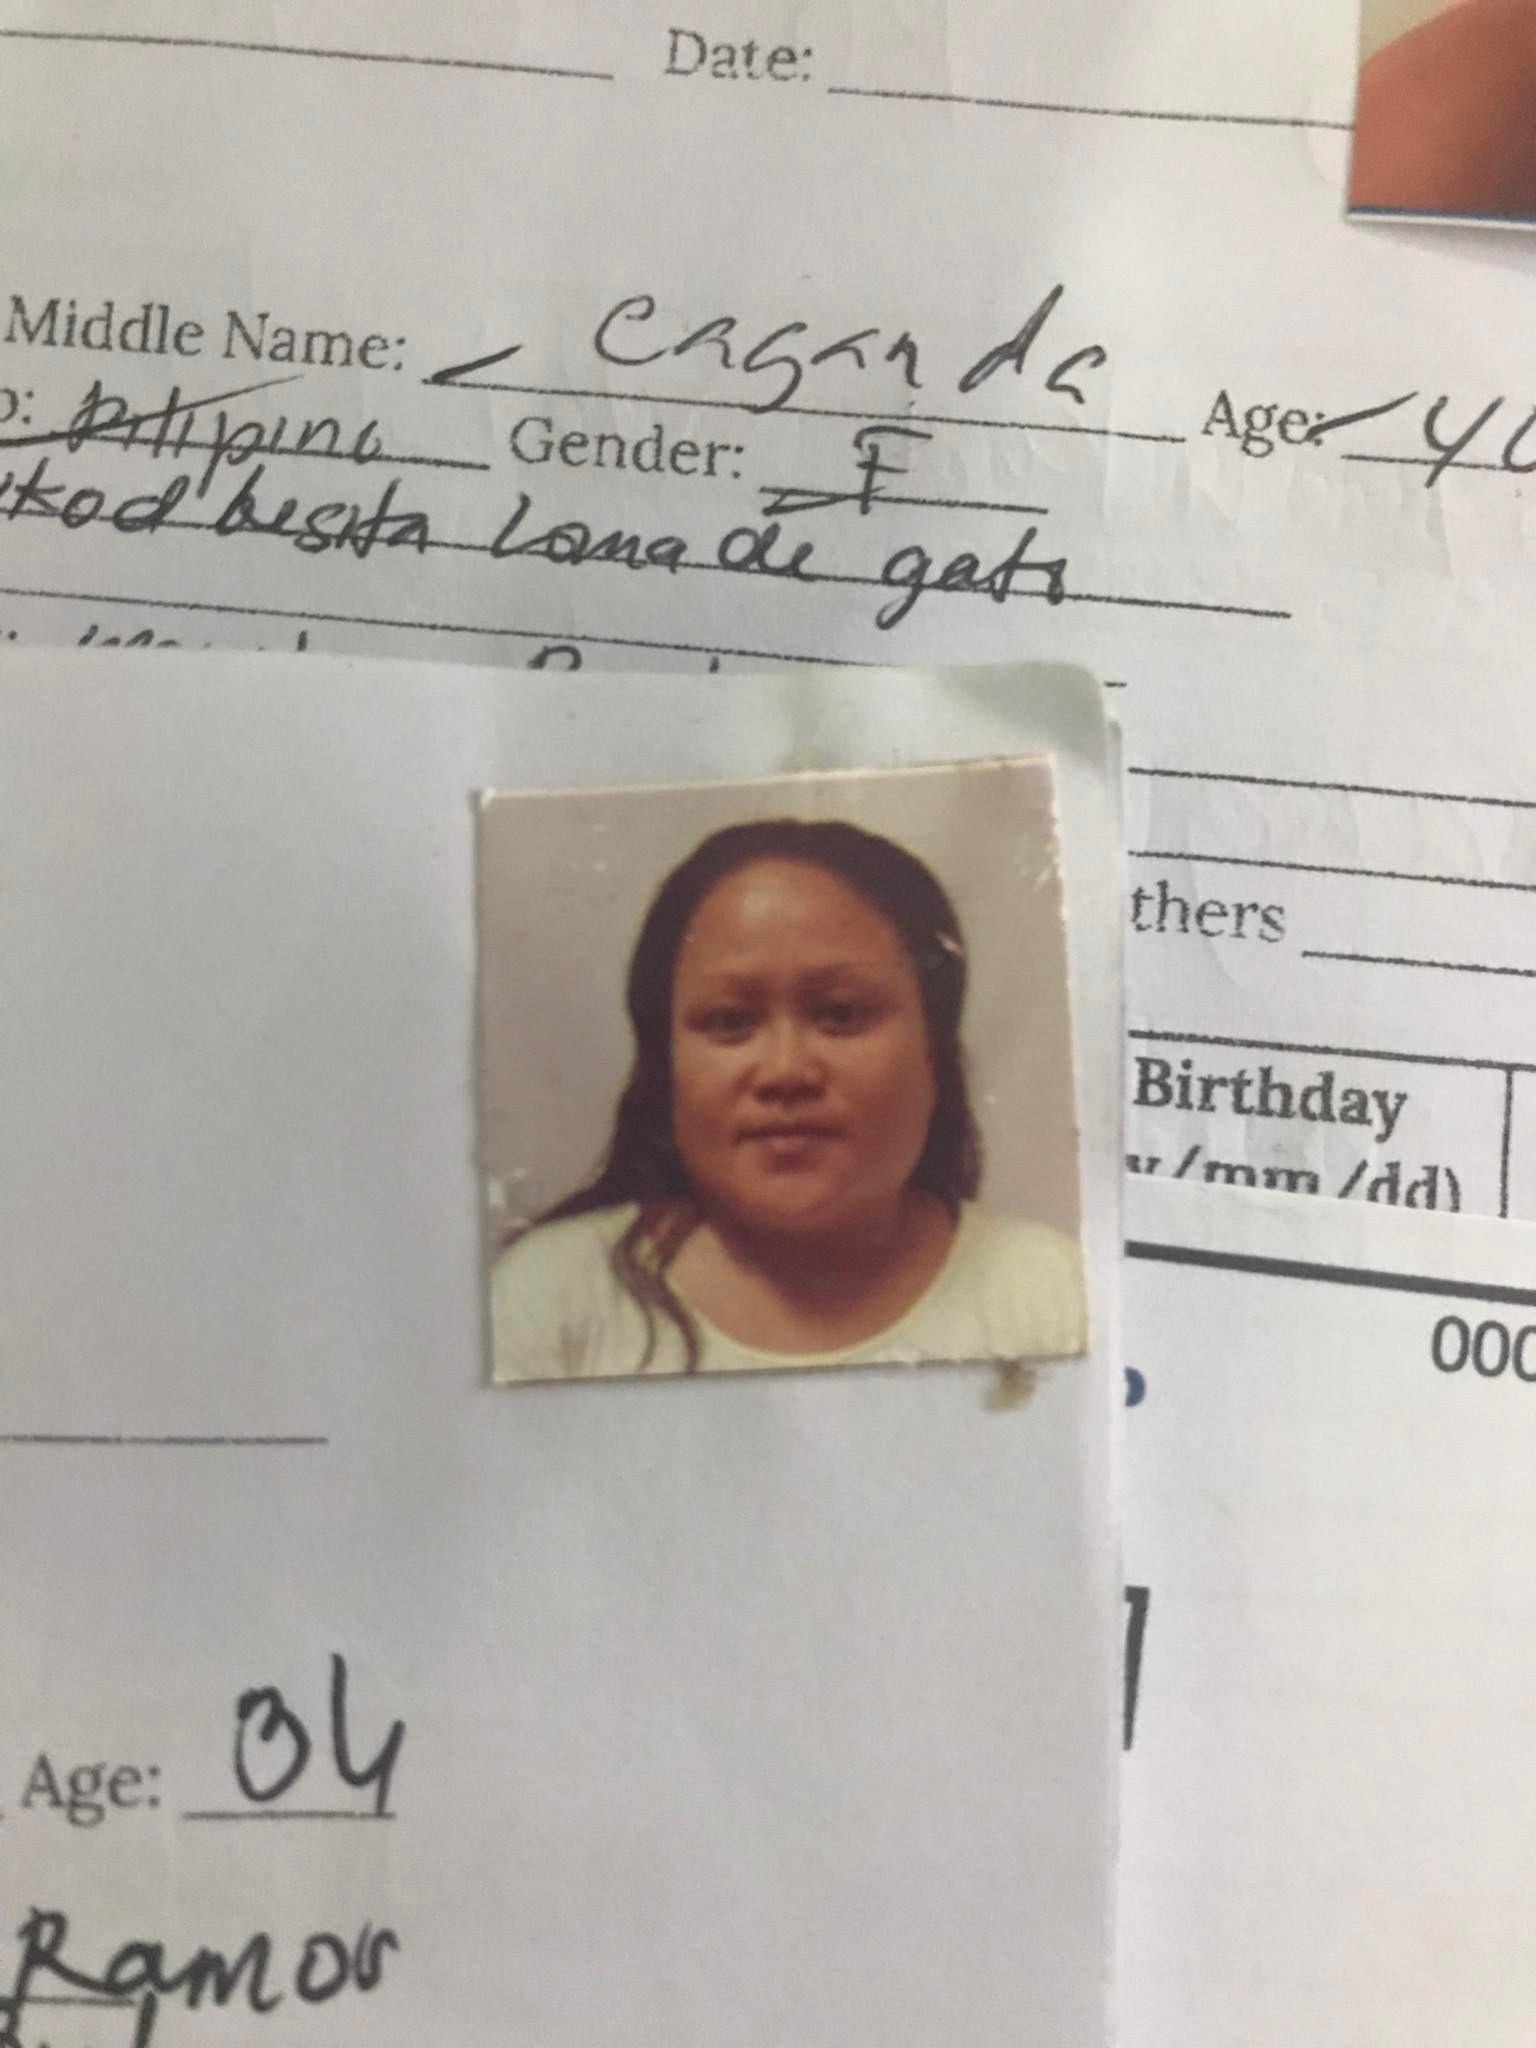 Date:
Middle Name: Caganda Age: 40
Pilipino Gender: F
besita Loma de gato
thers
Birthday
/mm/dd)
000
Age: 34
Ramos